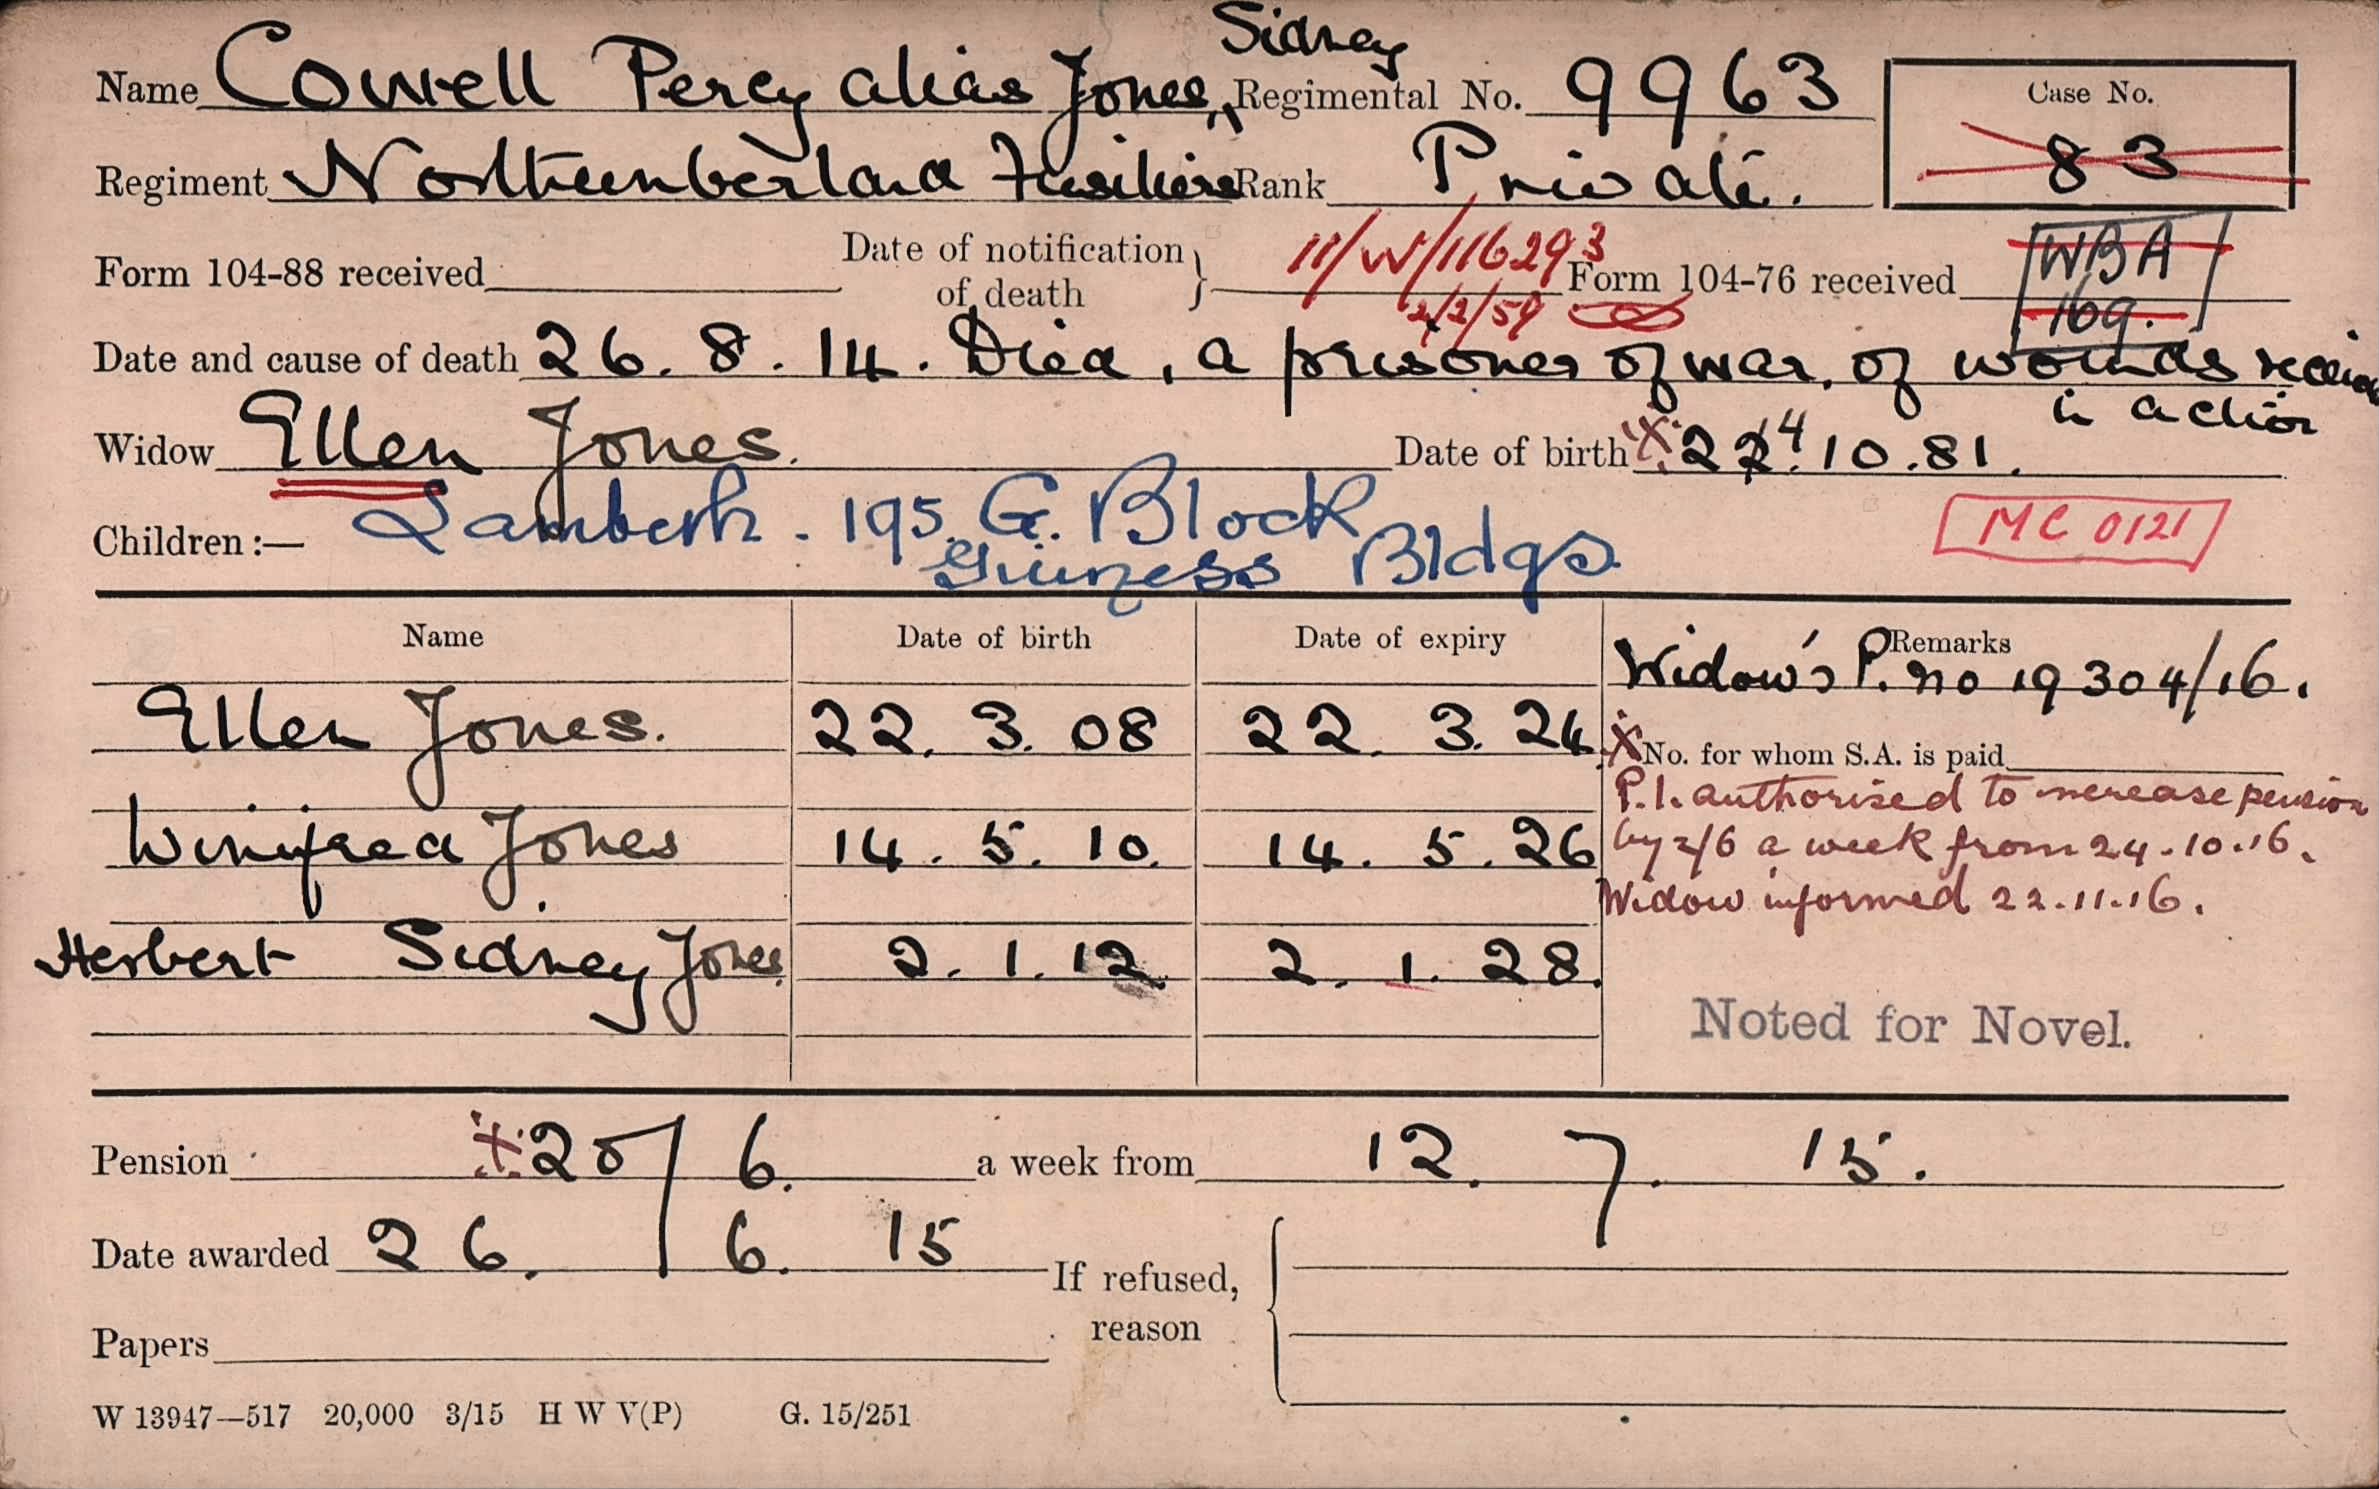 Sidney
Name Cowell Percy alias Jones, Regimental No. 9963
Case No.
83
Regiment Northumberland Fusiliers Rank Private.
Form 104-88 received Date of notification of death } 11/W/116293 Form 104-76 received WBA
2/2/59 169.
Date and cause of death 26. 8. 14. Died, a prisoner of war, of wounds received
in action
Widow Ellen Jones. Date of birth 22.4.10.81.
Lambeth. 195. G. Block MC 0121
Children:—
Guiness Bldgs
Name Date of birth Date of expiry Remarks
Widow's P. no 19304/16.
Ellen Jones. 22. 3. 08 22. 3. 24.
X No. for whom S.A. is paid
P.I. authorised to increase pension
Winifred Jones 14. 5. 10. 14. 5. 26
by 2/6 a week from 24.10.16.
Widow informed 22.11.16.
Herbert Sidney Jones 2. 1. 12 2. 1. 28.
Noted for Novel.
Pension 20/6. a week from 12. 7. 15.
Date awarded 26. 6. 15
If refused,
reason
Papers
W 13947—517 20,000 3/15 H W V(P) G. 15/251